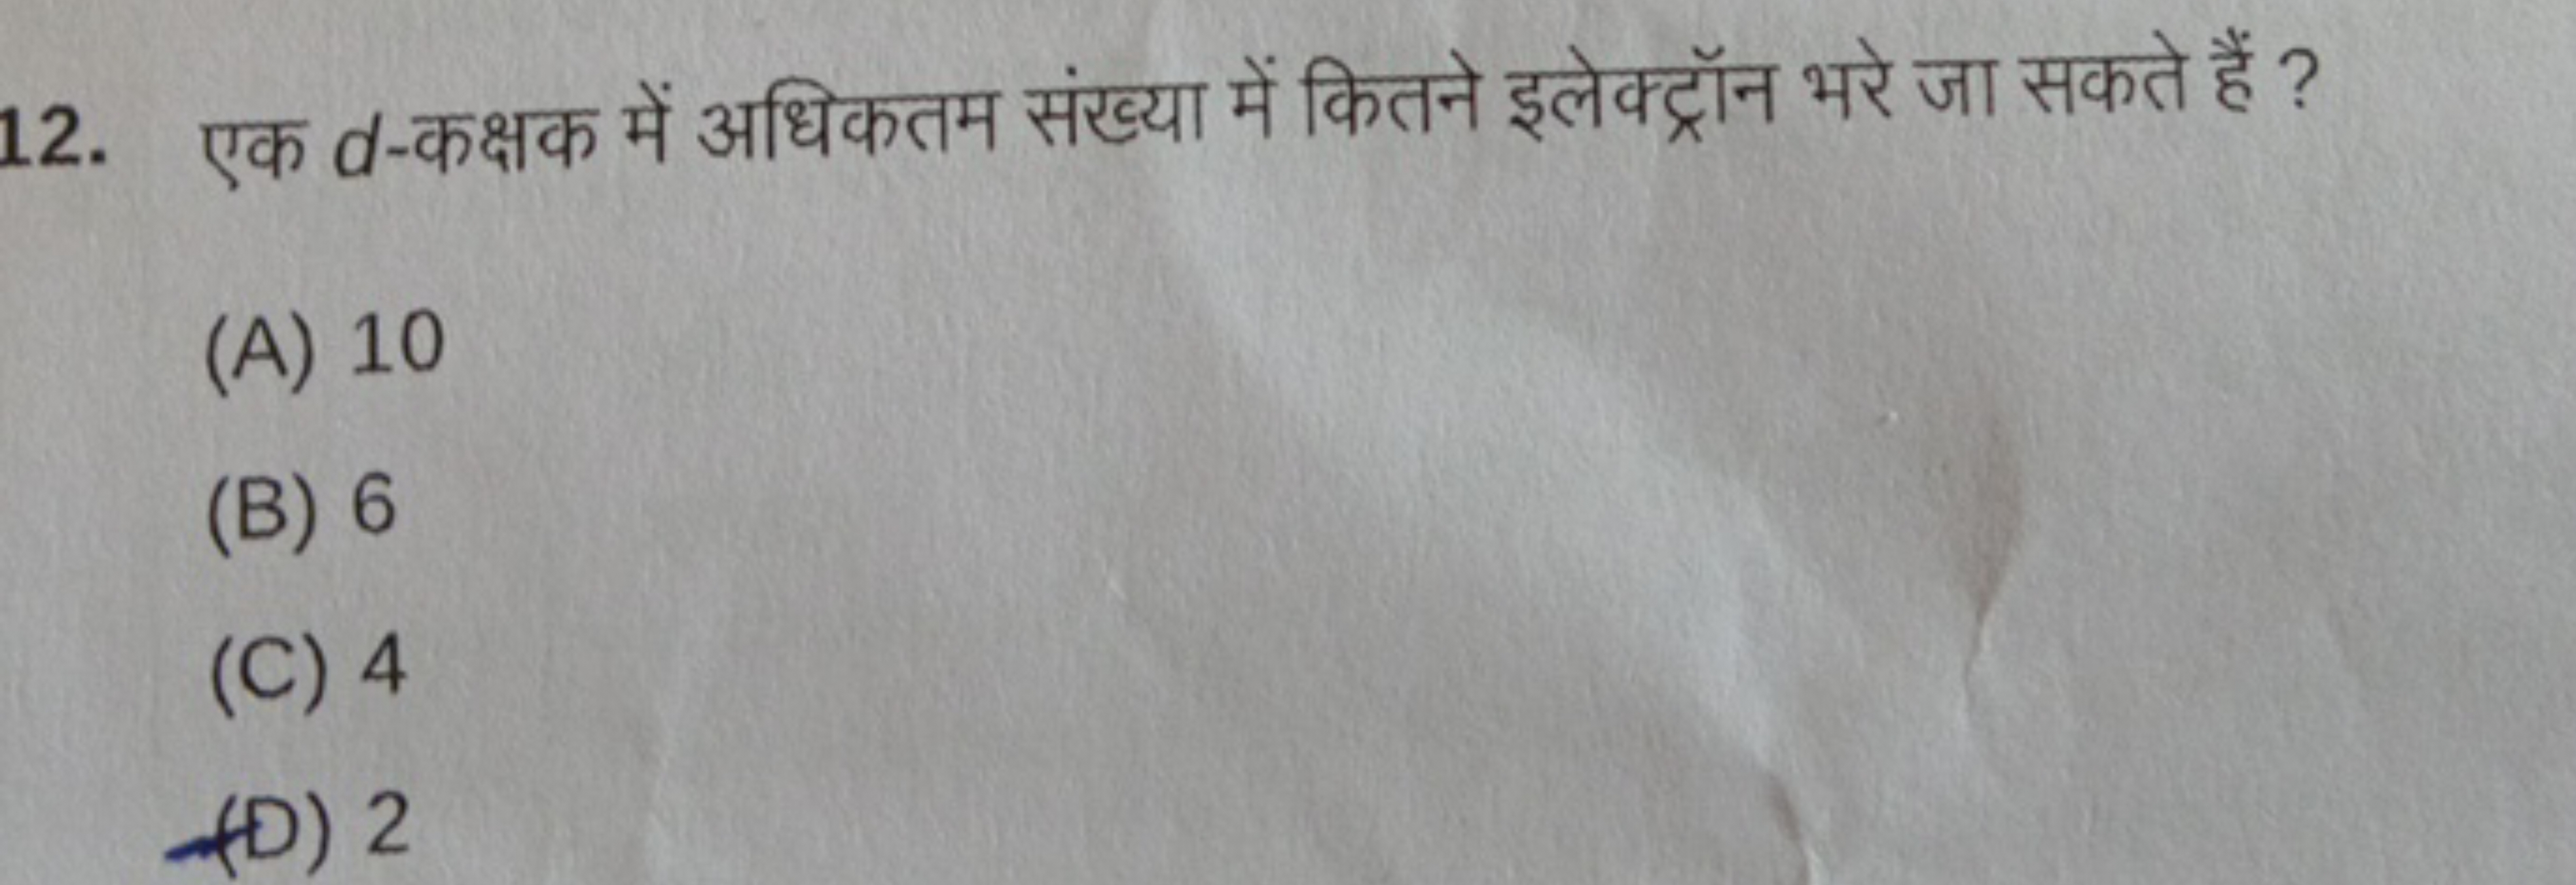 12. एक d-कक्षक में अधिकतम संख्या में कितने इलेक्ट्रॉन भरे जा सकते हैं ?
(A) 10
(B) 6
(C) 4
(D) 2